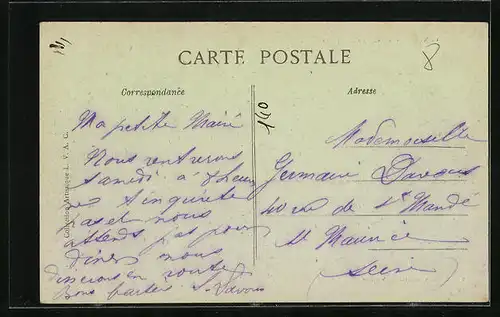 CARTE POSTALE
8
Correspondance
Adresse
140
Collection Artistique L. V. A. C.
Ma petite Mairé
Nous rentrerons
samedi à 8 heur
es t'inquiete
pas et nous
attends pas pour
diner nous
dinerons en route
Bons baisers
Mademoiselle
Germaine Davous
40 rue de St Mandé
St Maurice
Seine